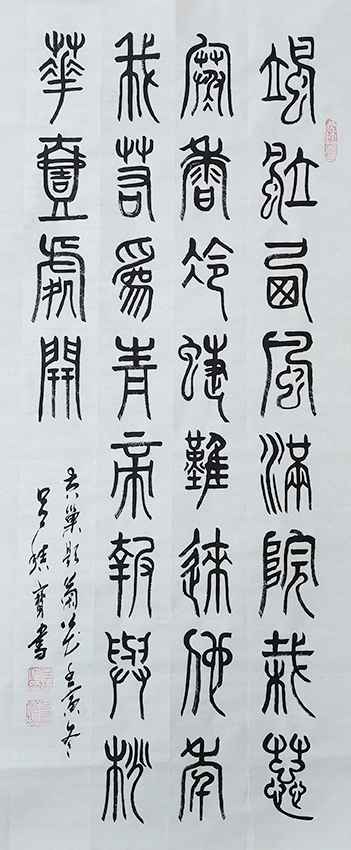 颯颯西風滿院栽蕊
寒香冷蝶難逨他年
我若為青帝報與桃
華壹處開
黃巢題菊花壬寅冬
呂寶書